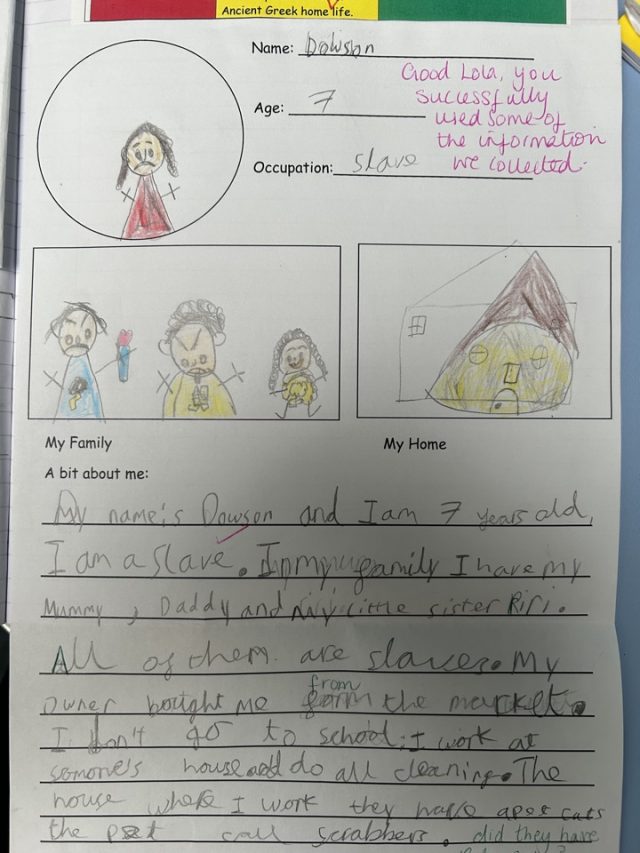 Ancient Greek home life.
Name: Dowson
Good Lola, you
sucessfully
used some of
the information
we collected.
Age: 7
Occupation: slave
My Family
My Home
A bit about me:
My name's Dowson and I am 7 years old,
I am a slave. In my family I have my
Mummy, Daddy and my little sister Riri.
All of them are slaves. My
from
owner bought me the market.
I don't go to school. I work at
someone's house and do all cleaning. The
house where I work they have a pet cats
the pet call scrabbers. did they have